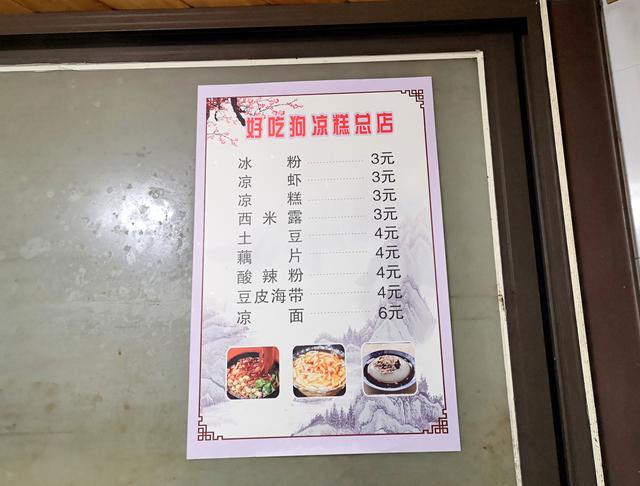 好吃狗凉糕总店
冰粉 3元
凉虾 3元
凉糕 3元
西米露 3元
土豆 4元
藕片 4元
酸辣粉 4元
豆皮海带 4元
凉面 6元